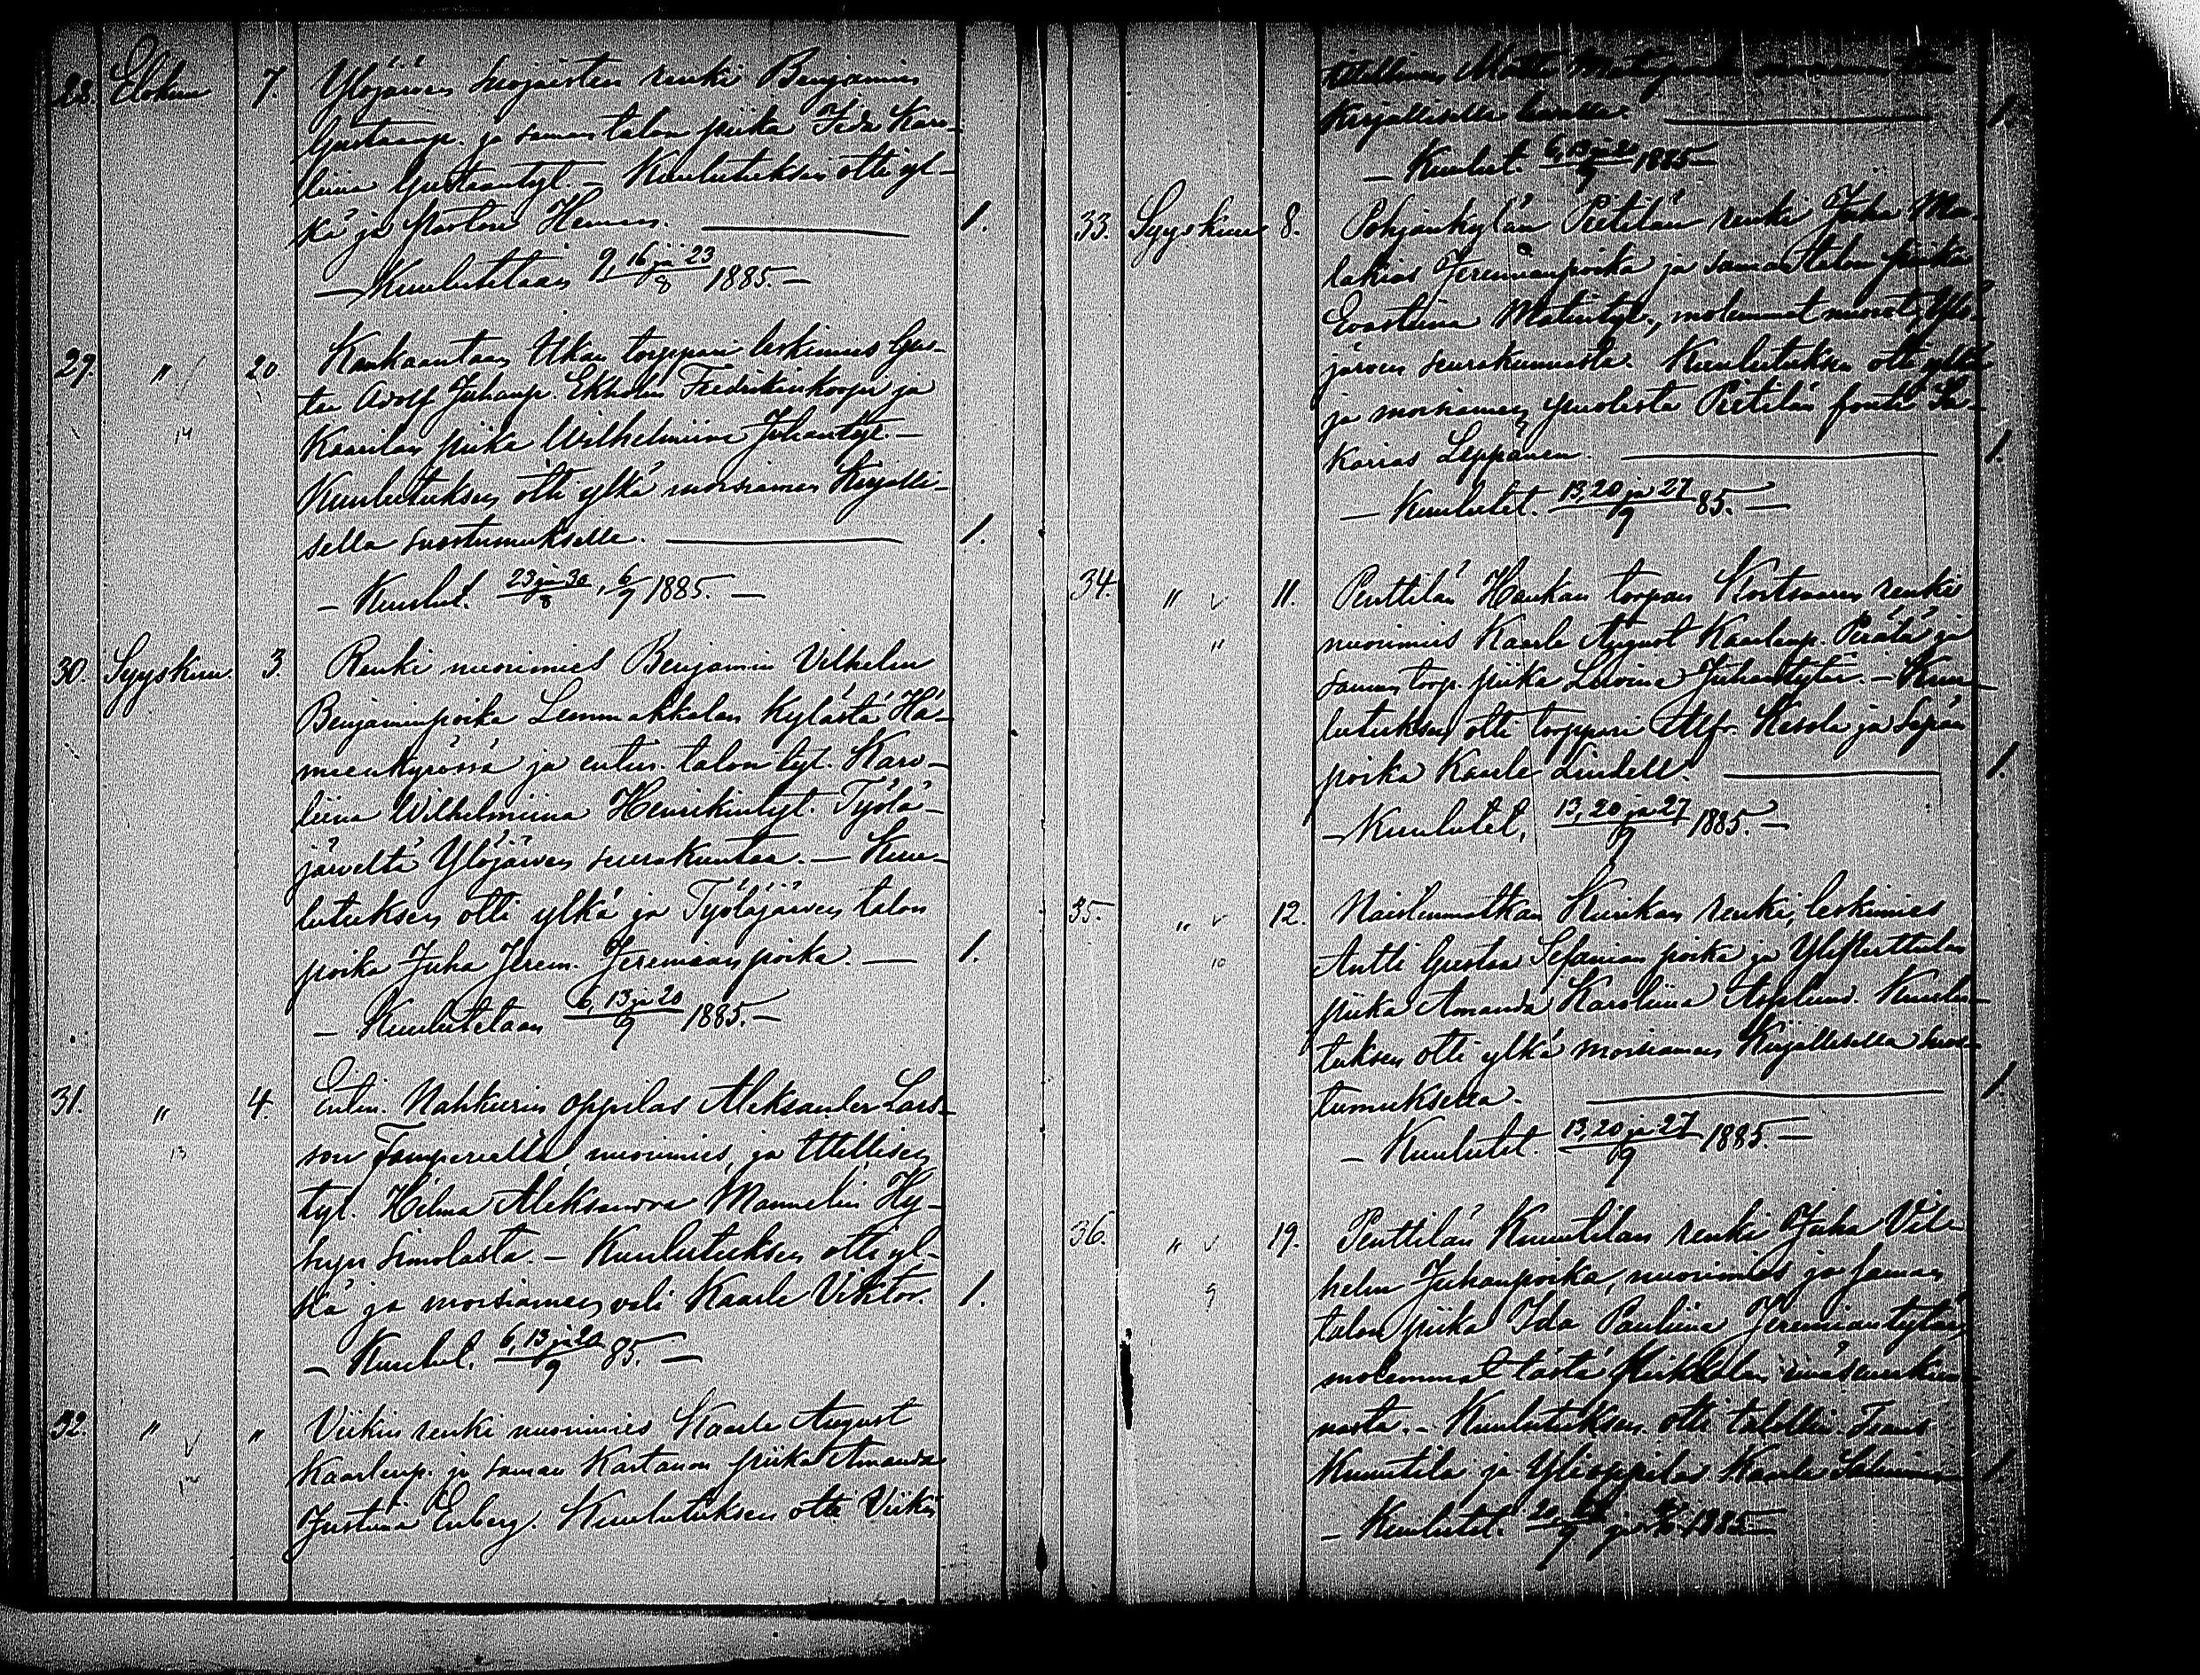 28. Elokuu 7. Ylöjärven renki Benjamin
Gustaanp. ja saman talon piika Ida Karo-
liina Gustaantyt. – Kuulutuksen otti yl-
kä ja 1.
— Kuulutetaan 9, 16 ja 23/8 1885. —
29. " 20 Kankaantaan torppari leskimies Gus-
taa Adolf Juhanp. Ekholm ja
14 Kaarilan piika Wilhelmiina Juhantyt. —
Kuulutuksen otti ylkä morsiamen kirjalli-
sella suostumuksella. 1.
– Kuulut. 23 ja 30/8, 6/9 1885. —
30. Syyskuu 3. Renki nuorimies Benjamin Vilhelm
Benjaminpoika Lemmakkalan kylästä Hä-
meenkyrössä ja entis. talon tyt. Karo-
liina Wilhelmiina Henrikintyt. Työlä-
järveltä Ylöjärven seurakuntaa. — Kuu-
lutuksen otti ylkä ja Työläjärven talon
poika Juha Jerem. Jeremiaanpoika. — 1.
– Kuulutetaan 6, 13 ja 20/9 1885. —
31. " 4. Entin. Nahkurin oppilas Aleksander Lars-
13 son Tampereelta nuorimies ja
tyt. Hilma Aleksandra Mannelin Hy-
hyn Simolasta. – Kuulutuksen otti yl-
kä ja morsiamen veli Kaarle Viktor. 1.
– Kuulut. 6, 13 ja 20/9 85. —
32. " " Viikin renki nuorimies Kaarle August
Kaarlenp. ja saman Kartanon piika Amanda
Justina Enberg. Kuulutuksen otti Viikin
kirjallisella 1.
– Kuulut. 6, 13 ja 20/9 1885 —
33. Syyskuu 8. Pohjankylän Pietilän renki Juha Ma-
lakias Jeremiaanpoika ja saman talon piika
Evastiina Matintyt., molemmat nuoret, Ylö-
järven seurakunnasta. Kuulutuksen otti ylkä
ja morsiamen puolesta Pietilän Sa-
karias Leppänen. 1.
— Kuulutet. 13, 20 ja 27/9 85. —
34. " 11. Penttilän Haukan torpan renki
" nuorimies Kaarle August Kaarlenp. Perälä ja
saman torp. piika Loviina Juhantytär. – Kuu-
lutuksen otti torppari Alfr. Kesola ja Sepän
poika Kaarle Lindell. 1.
– Kuulutet. 13, 20 ja 27/9 1885. —
35. " 12. Naistenmatkan Kurikan renki, leskimies
10 Antti Gustaa Sefanian poika ja
piika Amanda Karoliina Asplund. Kuulu-
tuksen otti ylkä morsiamen kirjallisella suos-
tumuksella. 1.
– Kuulutet. 13, 20 ja 27/9 1885. —
36. " 19. Penttilän Knuutilan renki Juha Vil-
9 helm Juhanpoika, nuorimies ja saman
talon piika Ida Pauliina Jeremiantytär,
molemmat tästä Pirkkalan emäseurakun-
nasta. – Kuulutuksen otti talollin. Frans
Knuutila ja Ylioppilas Kaarle Salminen 1
– Kuulutet. 1885